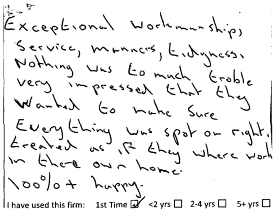 Exceptional workmanship,
service, manners, tidyness.
Nothing was to much troble
very impressed that they
wanted to make sure
Everything was spot on right.
treated as if they where work
in there own home.
100%+ happy.
I have used this firm: 1st Time ☑ <2 yrs ☐ 2-4 yrs ☐ 5+ yrs ☐